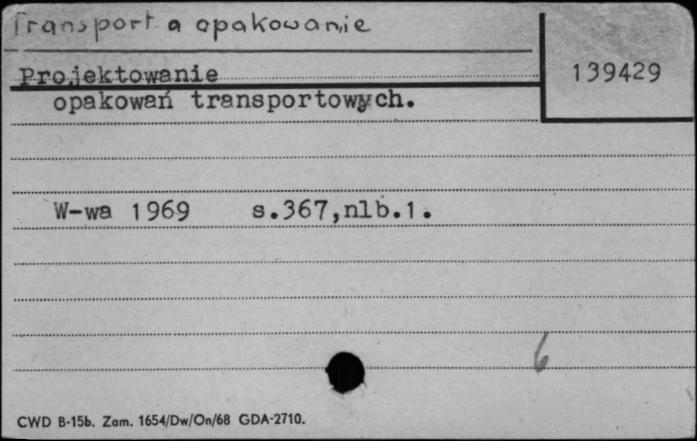 Transport a opakowanie
139429
Projektowanie
opakowań transportowych.
W-wa 1969 s.367,nlb.1.
6
CWD B-15b. Zam. 1654/Dw/On/68 GDA-2710.